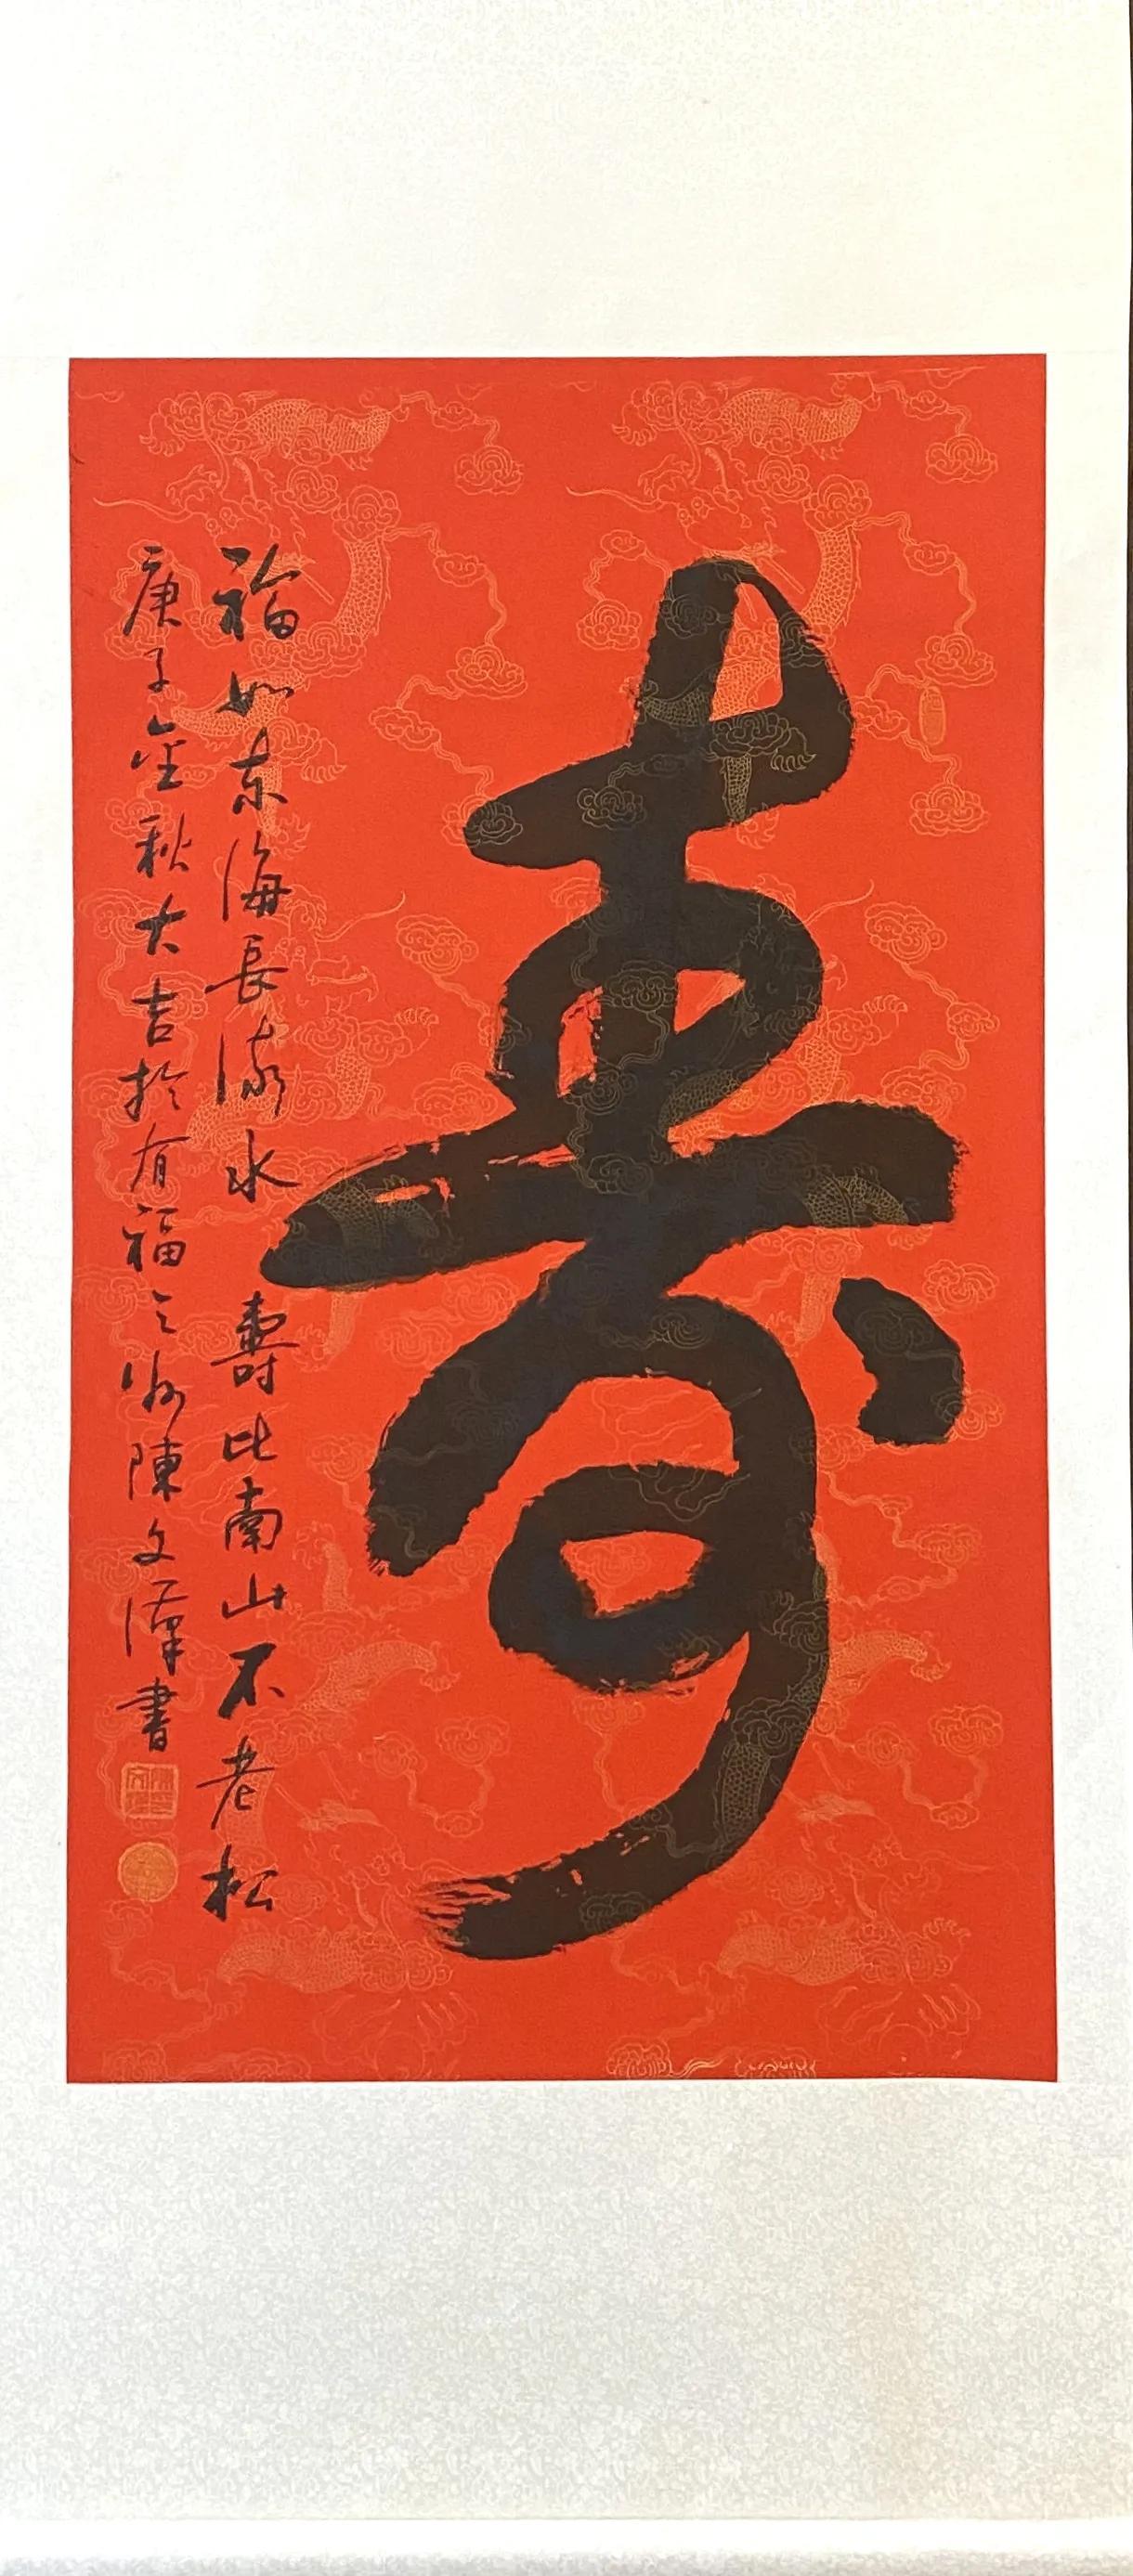 壽
福如東海長流水 壽比南山不老松
庚子金秋大吉於有福之州陳文漢書